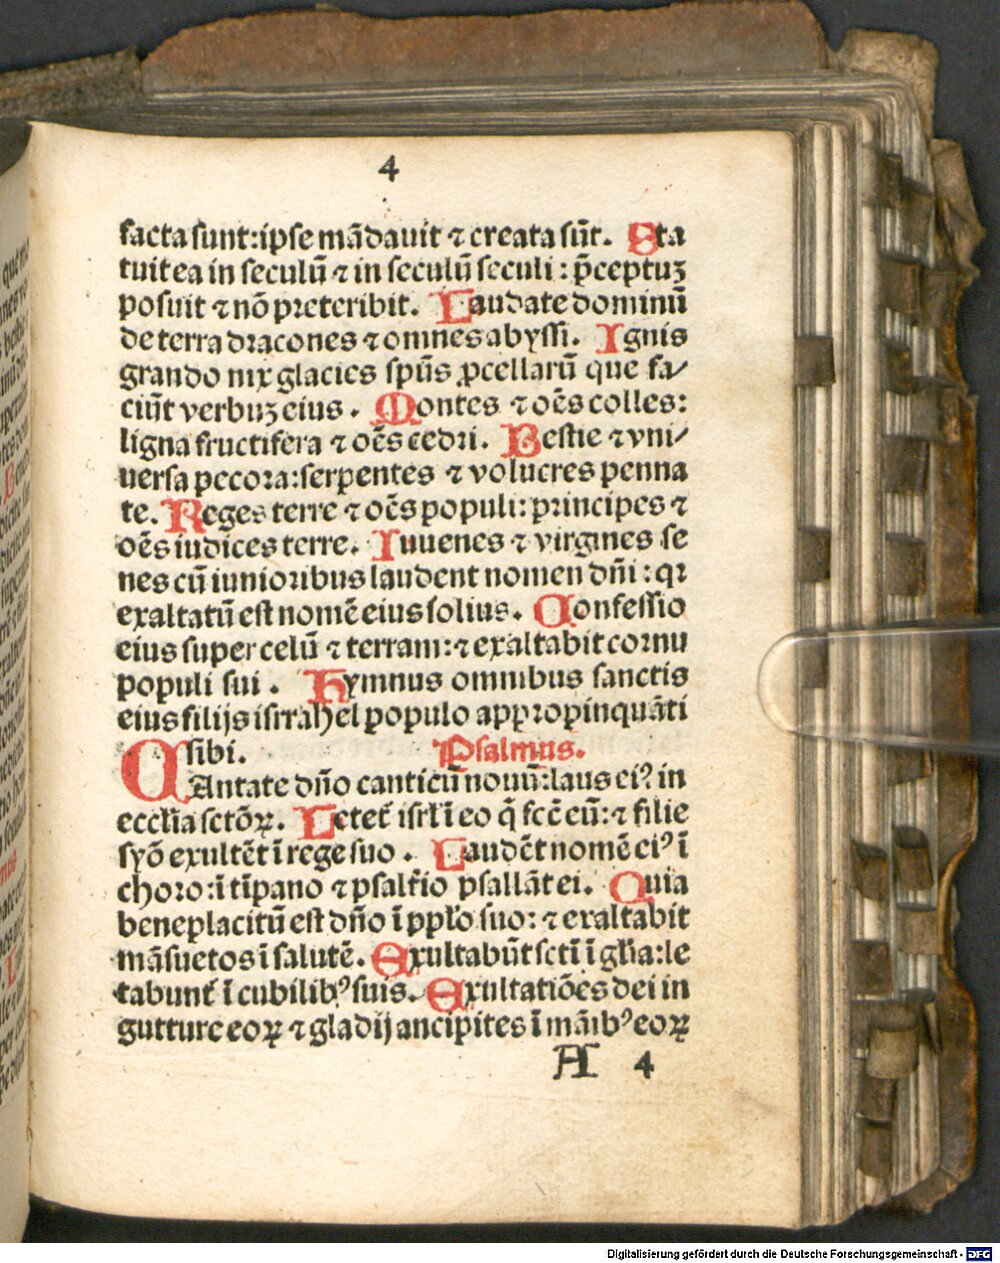 4
facta sunt:ipse mādauit ⁊ creata sūt. Sta
tuit ea in seculū ⁊ in seculū seculi : p̄ceptuꝫ
posuit ⁊ nō preteribit. Laudate dominū
de terra dracones ⁊ omnes abyssi. Ignis
grando nix glacies spūs ꝓcellarū que fa⸗
ciūt verbuꝫ eius . Montes ⁊ oēs colles:
ligna fructifera ⁊ oēs cedri. Bestie ⁊ vni⸗
uersa pecora:serpentes ⁊ volucres penna
te. Reges terre ⁊ oēs populi: principes ⁊
oēs iudices terre. Iuuenes ⁊ virgines se
nes cū iunioribus laudent nomen dn̄i : qr
exaltatū est nomē eius solius. Confessio
eius super celū ⁊ terram:⁊ exaltabit cornu
populi sui . Hymnus omnibus sanctis
eius filijs isrrahel populo appropinquāti
sibi. Psalmus.
CAntate dn̄o canticū nouū:laus ei⁹ in
eccl̄ia sctōꝝ. Letet̄ isrl̄ ī eo q̄ fcē eū:⁊ filie
syō exultēt ī rege suo . Laudēt nomē ei⁹ ī
choro:ī tīpano ⁊ psalt̄io psallāt ei. Quia
beneplacitū est dn̄o ī ppl̄o suo: ⁊ exaltabit
māsuetos ī salutē. Exultabūt sctī ī gl̄ia:le
tabunt̄ ī cubilib⁹ suis. Exultatiōes dei in
gutture eoꝝ ⁊ gladij ancipites ī māib⁹ eoꝝ
A 4
Digitalisierung gefördert durch die Deutsche Forschungsgemeinschaft - DFG